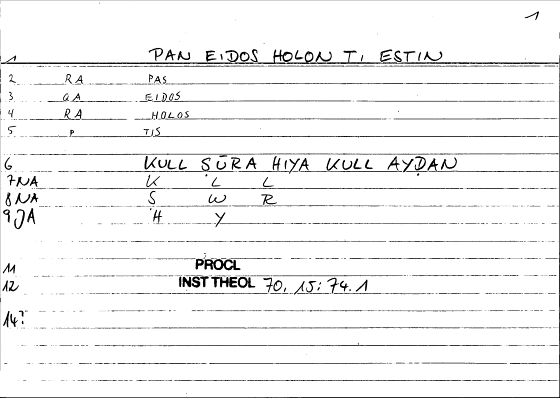 1
1 PAN EIDOS HOLON TI ESTIN
2 RA PAS
3 GA EIDOS
4 RA HOLOS
5 P TIS
6 KULL ṢŪRA HIYA KULL AYḌAN
7 NA K L L
8 NA Ṣ W R
9 JA H Y
11 PROCL
12 INST THEOL 70, 15; 74.1
14?